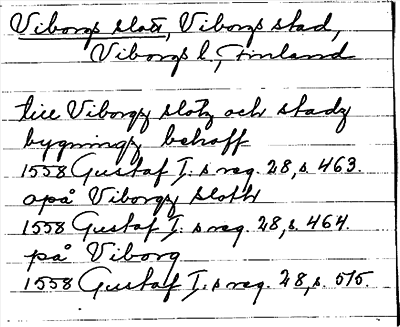 Viborgs slott, Viborgs stad,
Viborgs l., Finland
till Viborgz slotz och stadz
bygningz behoff
1558 Gustaf I. s reg. 28, s. 463.
opå Viborgz sloth
1558 Gustaf I. s reg. 28, s. 464.
på Viborg
1558 Gustaf I. s reg. 28, s. 515.